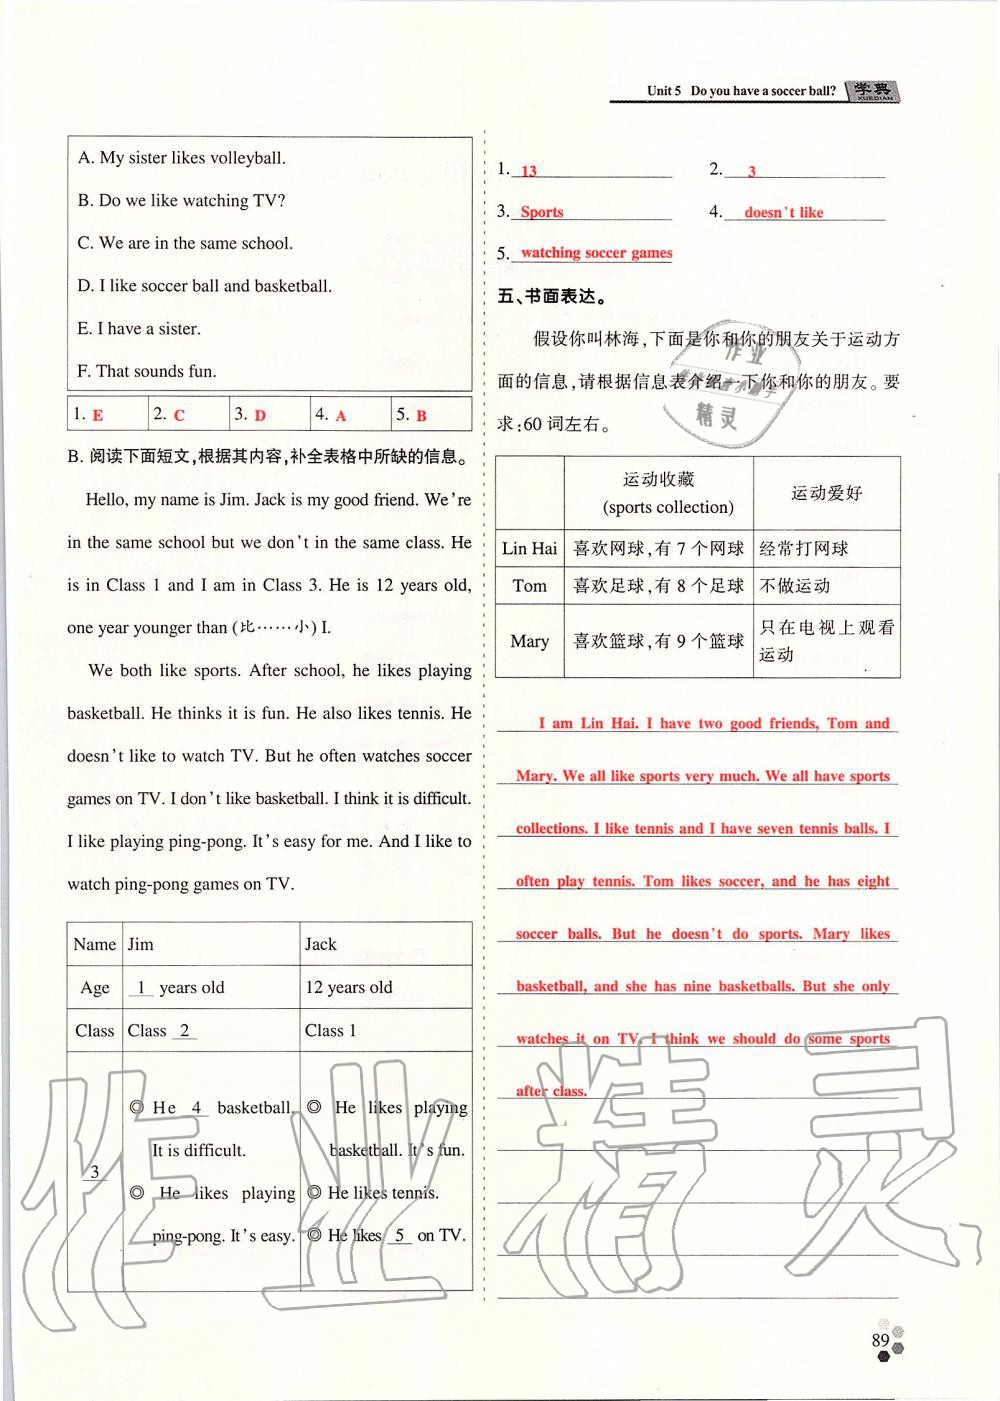 Unit 5 Do you have a soccer ball? 学典
XUEDIAN
A. My sister likes volleyball.
B. Do we like watching TV?
C. We are in the same school.
D. I like soccer ball and basketball.
E. I have a sister.
F. That sounds fun.
1. E 2. C 3. D 4. A 5. B
B. 阅读下面短文,根据其内容,补全表格中所缺的信息。
Hello, my name is Jim. Jack is my good friend. We're
in the same school but we don't in the same class. He
is in Class 1 and I am in Class 3. He is 12 years old,
one year younger than (比……小) I.
We both like sports. After school, he likes playing
basketball. He thinks it is fun. He also likes tennis. He
doesn't like to watch TV. But he often watches soccer
games on TV. I don't like basketball. I think it is difficult.
I like playing ping-pong. It's easy for me. And I like to
watch ping-pong games on TV.
Name Jim Jack
Age 1 years old 12 years old
Class Class 2 Class 1
3
◎ He 4 basketball.
It is difficult.
◎ He likes playing
ping-pong. It's easy.
◎ He likes playing
basketball. It's fun.
◎ He likes tennis.
◎ He likes 5 on TV.
1. 13 2. 3
3. Sports 4. doesn't like
5. watching soccer games
五、书面表达。
假设你叫林海,下面是你和你的朋友关于运动方
面的信息,请根据信息表介绍一下你和你的朋友。要
求:60 词左右。
运动收藏
(sports collection)
运动爱好
Lin Hai 喜欢网球,有 7 个网球 经常打网球
Tom 喜欢足球,有 8 个足球 不做运动
Mary 喜欢篮球,有 9 个篮球 只在电视上观看
运动
I am Lin Hai. I have two good friends, Tom and
Mary. We all like sports very much. We all have sports
collections. I like tennis and I have seven tennis balls. I
often play tennis. Tom likes soccer, and he has eight
soccer balls. But he doesn't do sports. Mary likes
basketball, and she has nine basketballs. But she only
watches it on TV. I think we should do some sports
after class.
作业
精灵
作业精灵
89